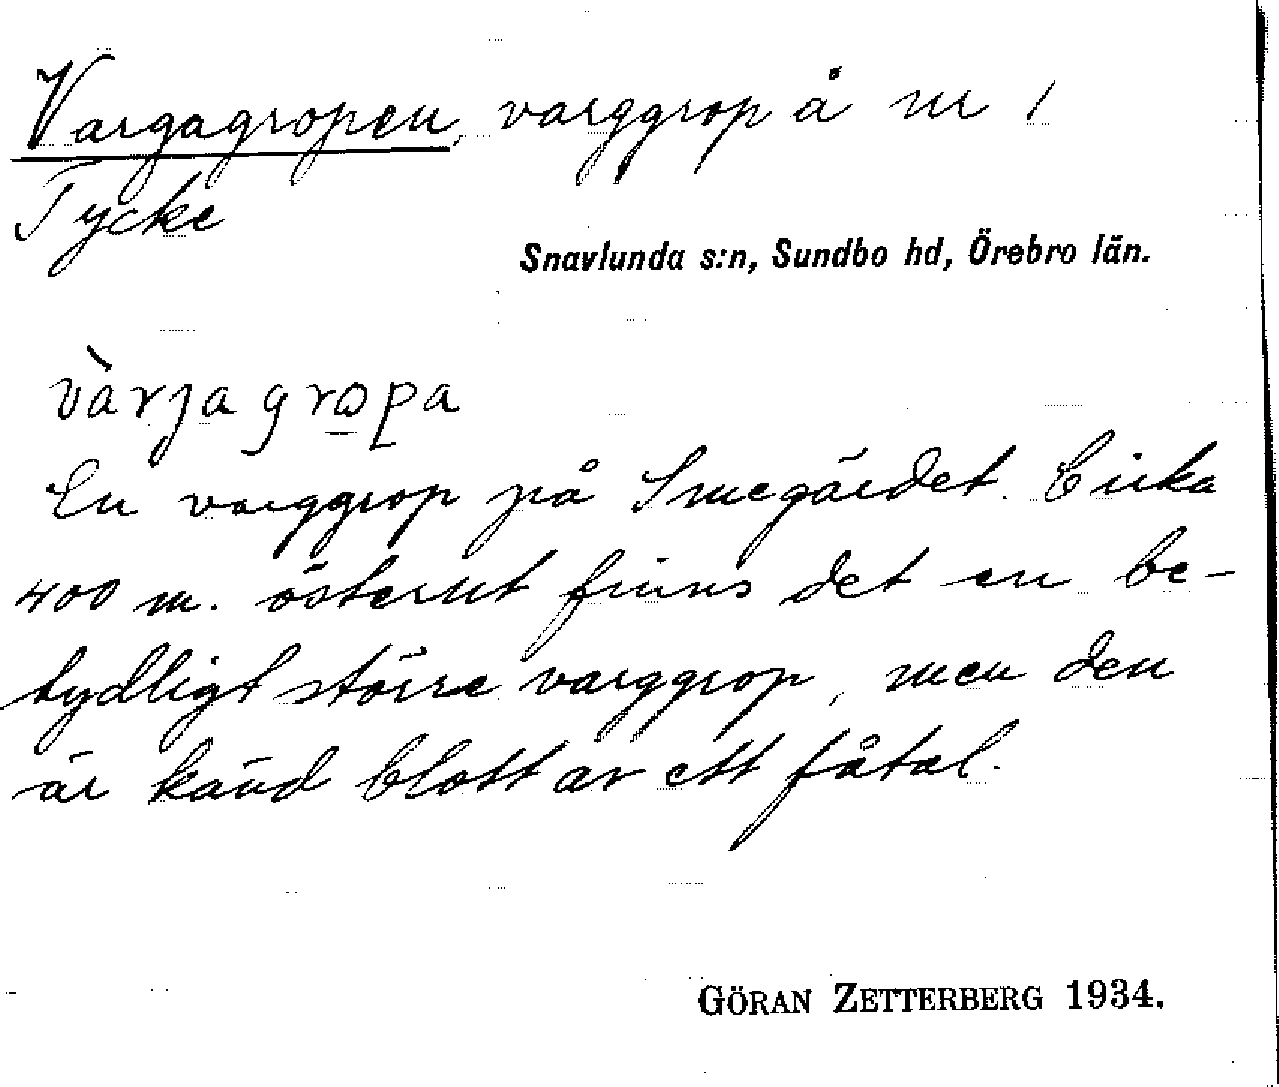 Vargagropen, varggrop å nr 1
Tycke
Snavlunda s:n, Sundbo hd, Örebro län.
vàrjagropa
En varggrop på Smegärdet. Cirka
400 m. österut finns det en be-
tydligt större varggrop, men den
är känd blott av ett fåtal.
GÖRAN ZETTERBERG 1934.